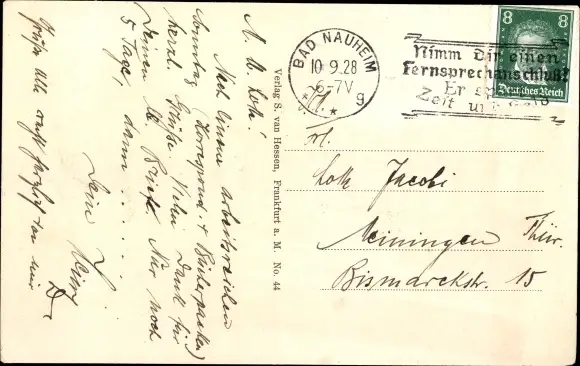 M. l. Lotte!
Nach einem arbeitsreichen
Sonntag (Korrespond. + Räuberpacken)
herzl. Grüße. Vielen Dank für
Deinen lb. Brief. Nur noch
5 Tage, dann . . . .
Dein
Heinz
Grüße alle recht herzlich von mir
Verlag S. van Hessen, Frankfurt a. M. No. 44
BAD NAUHEIM
10.9.28
6-7V
* g
Nimm Dir einen
Fernsprechanschluß
Er
Zeit und Geld
8 8
Deutsches Reich
Frl.
Lotte Jacobi
Meiningen Thür.
Bismarckstr. 15